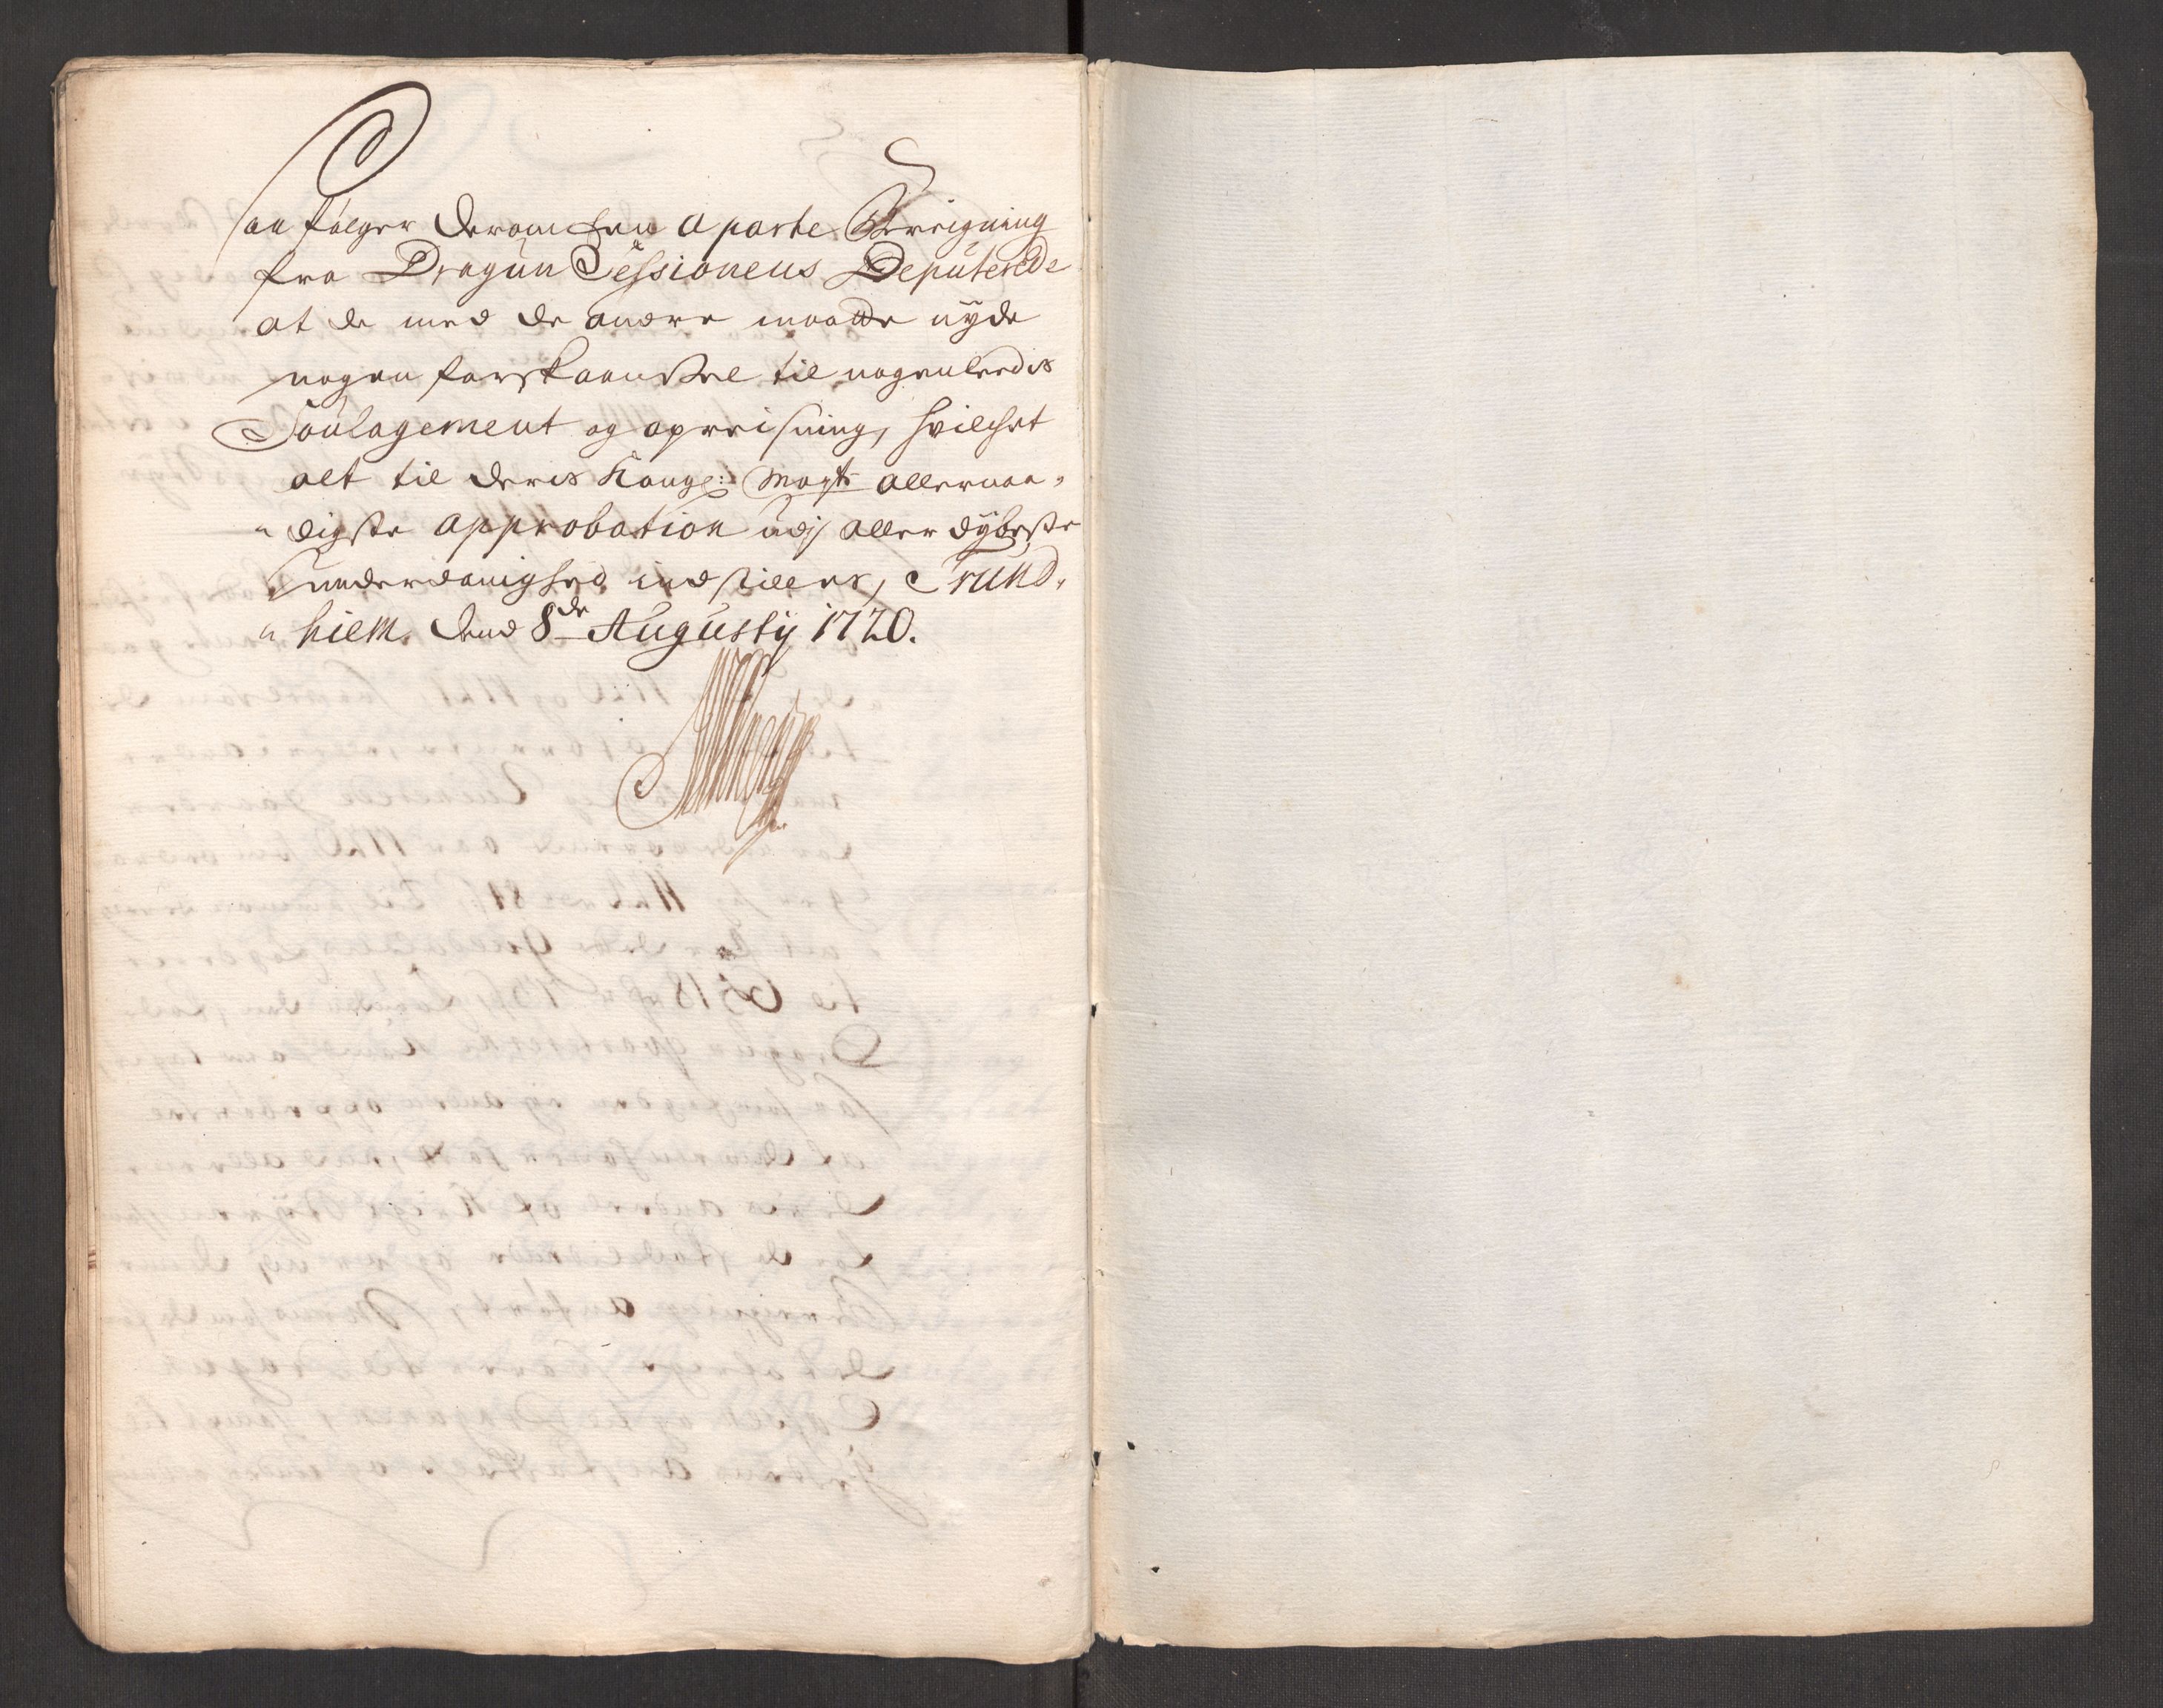 saa følger derom hen aparte Bereigning
fra Dragun Sessionens Deputerede
at de med de andre maatte nyde
nogen forskaansel til nogenledis
Soulagement og opreisning, hvilchet
alt til deris Kongl: Mayts allernaa-
digste approbation udj aller dybeste
underdanighed indstilles, Trund-
hiem. dend 8de Augustij 1720.